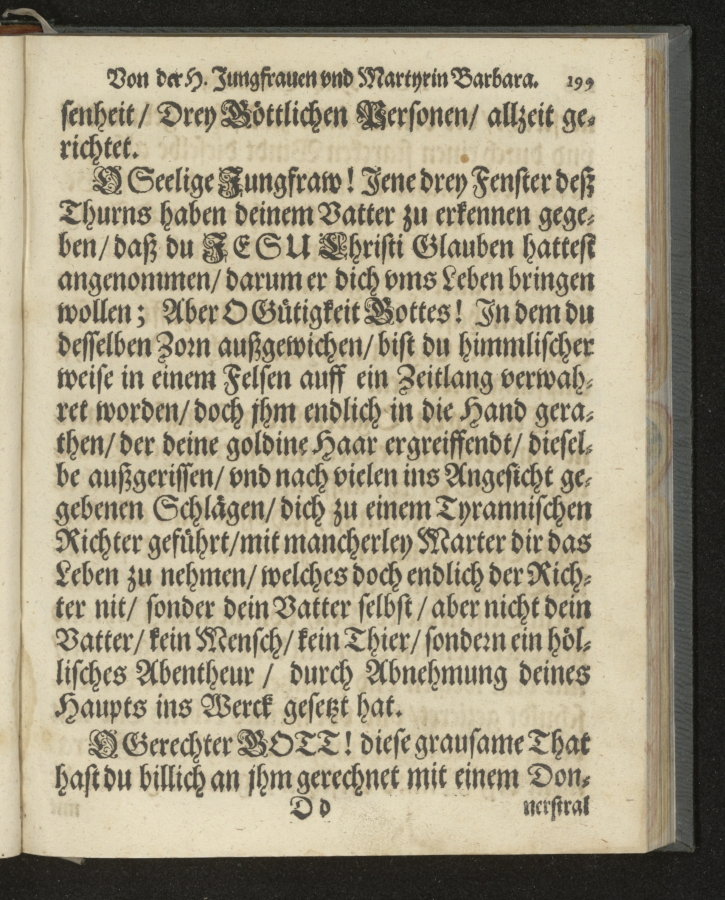 Von der H. Jungfrauen vnd Martyrin Barbara. 199
senheit/ Drey Göttlichen Personen/ allzeit ge-
richtet.
O Seelige Jungfraw! Jene drey Fenster deß
Thurns haben deinem Vatter zu erkennen gege-
ben/ daß du JESU Christi Glauben hattest
angenommen/ darum er dich vms Leben bringen
wollen; Aber O Gütigkeit Gottes! In dem du
desselben Zorn außgewichen/ bist du himmlischer
weise in einem Felsen auff ein Zeitlang verwah-
ret worden/ doch jhm endlich in die Hand gera-
then/ der deine goldine Haar ergreiffendt/ diesel-
be außgerissen/ vnd nach vielen ins Angesicht ge-
gebenen Schlägen/ dich zu einem Tyrannischen
Richter geführt/ mit mancherley Marter dir das
Leben zu nehmen/ welches doch endlich der Rich-
ter nit/ sonder dein Vatter selbst/ aber nicht dein
Vatter/ kein Mensch/ kein Thier/ sondern ein höl-
lisches Abentheur/ durch Abnehmung deines
Haupts ins Werck gesetzt hat.
O Gerechter GOTT! diese grausame That
hast du billich an jhm gerechnet mit einem Don-
D d nerstral